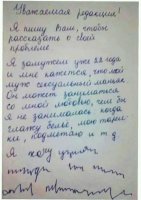 Уважаемая редакция!
Я пишу Вам, чтобы
рассказать о своей
проблеме.
Я замужем уже 22 года
и мне кажется, что мой
муж сексуальный маньяк
Он может заниматься
со мной любовью, чем бы
я не занималась когда
глажу белье, мою тарелки,
подметаю и т д
Я хочу